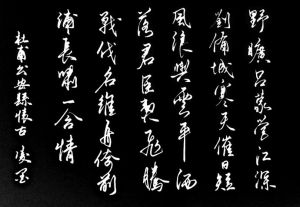 野曠呂蒙營江深
劉備城寒天催日短
風浪與雲平洒
落君臣契飛騰
戰伐名維舟倚前
浦長嘯一含情
杜甫公安縣懷古